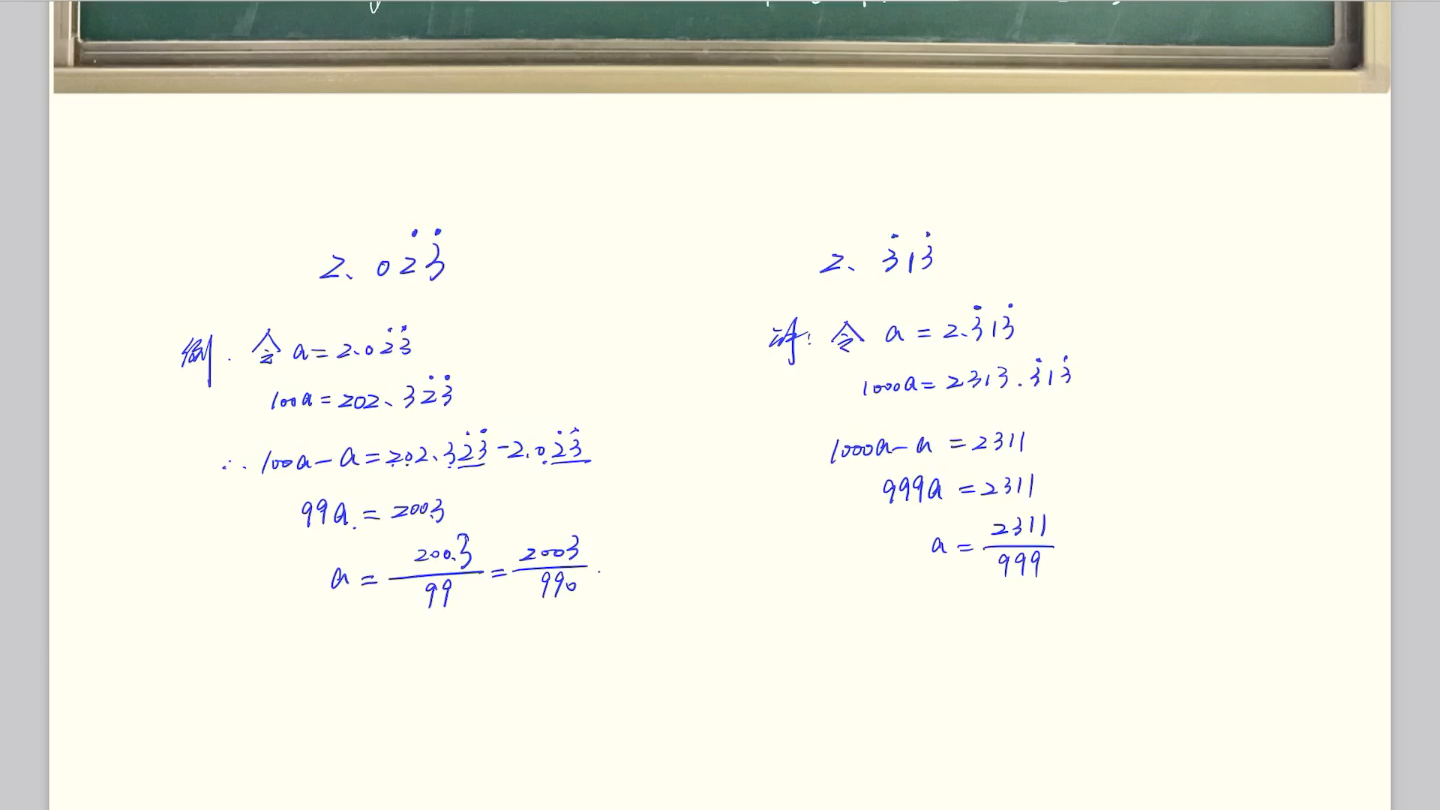 2.02̇3̇
例. 令 a=2.02̇3̇
100a=202.32̇3̇
∴ 100a-a=202.32̇3̇-2.02̇3̇
99a=200.3
a=200.3/99=2003/990.
2.3̇13̇
译: 令 a=2.3̇13̇
1000a=2313.3̇13̇
1000a-a=2311
999a=2311
a=2311/999